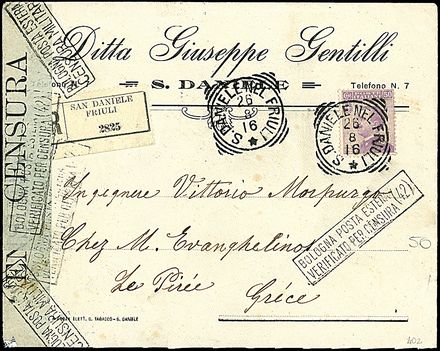 Ditta Giuseppe Gentilli
S. DANIELE
Telefono N. 7
CENSURA
SAN DANIELE
FRIULI
2825
S. DANIELE NEL FRIULI
26
8
16
S. DANIELE NEL FRIULI
26
8
16
Ingegnere Vittorio Morpurgo
Chez M. Evanghelinos
Le Pirée
Gréce
BOLOGNA POSTA ESTERA
VERIFICATO PER CENSURA (42)
50
402